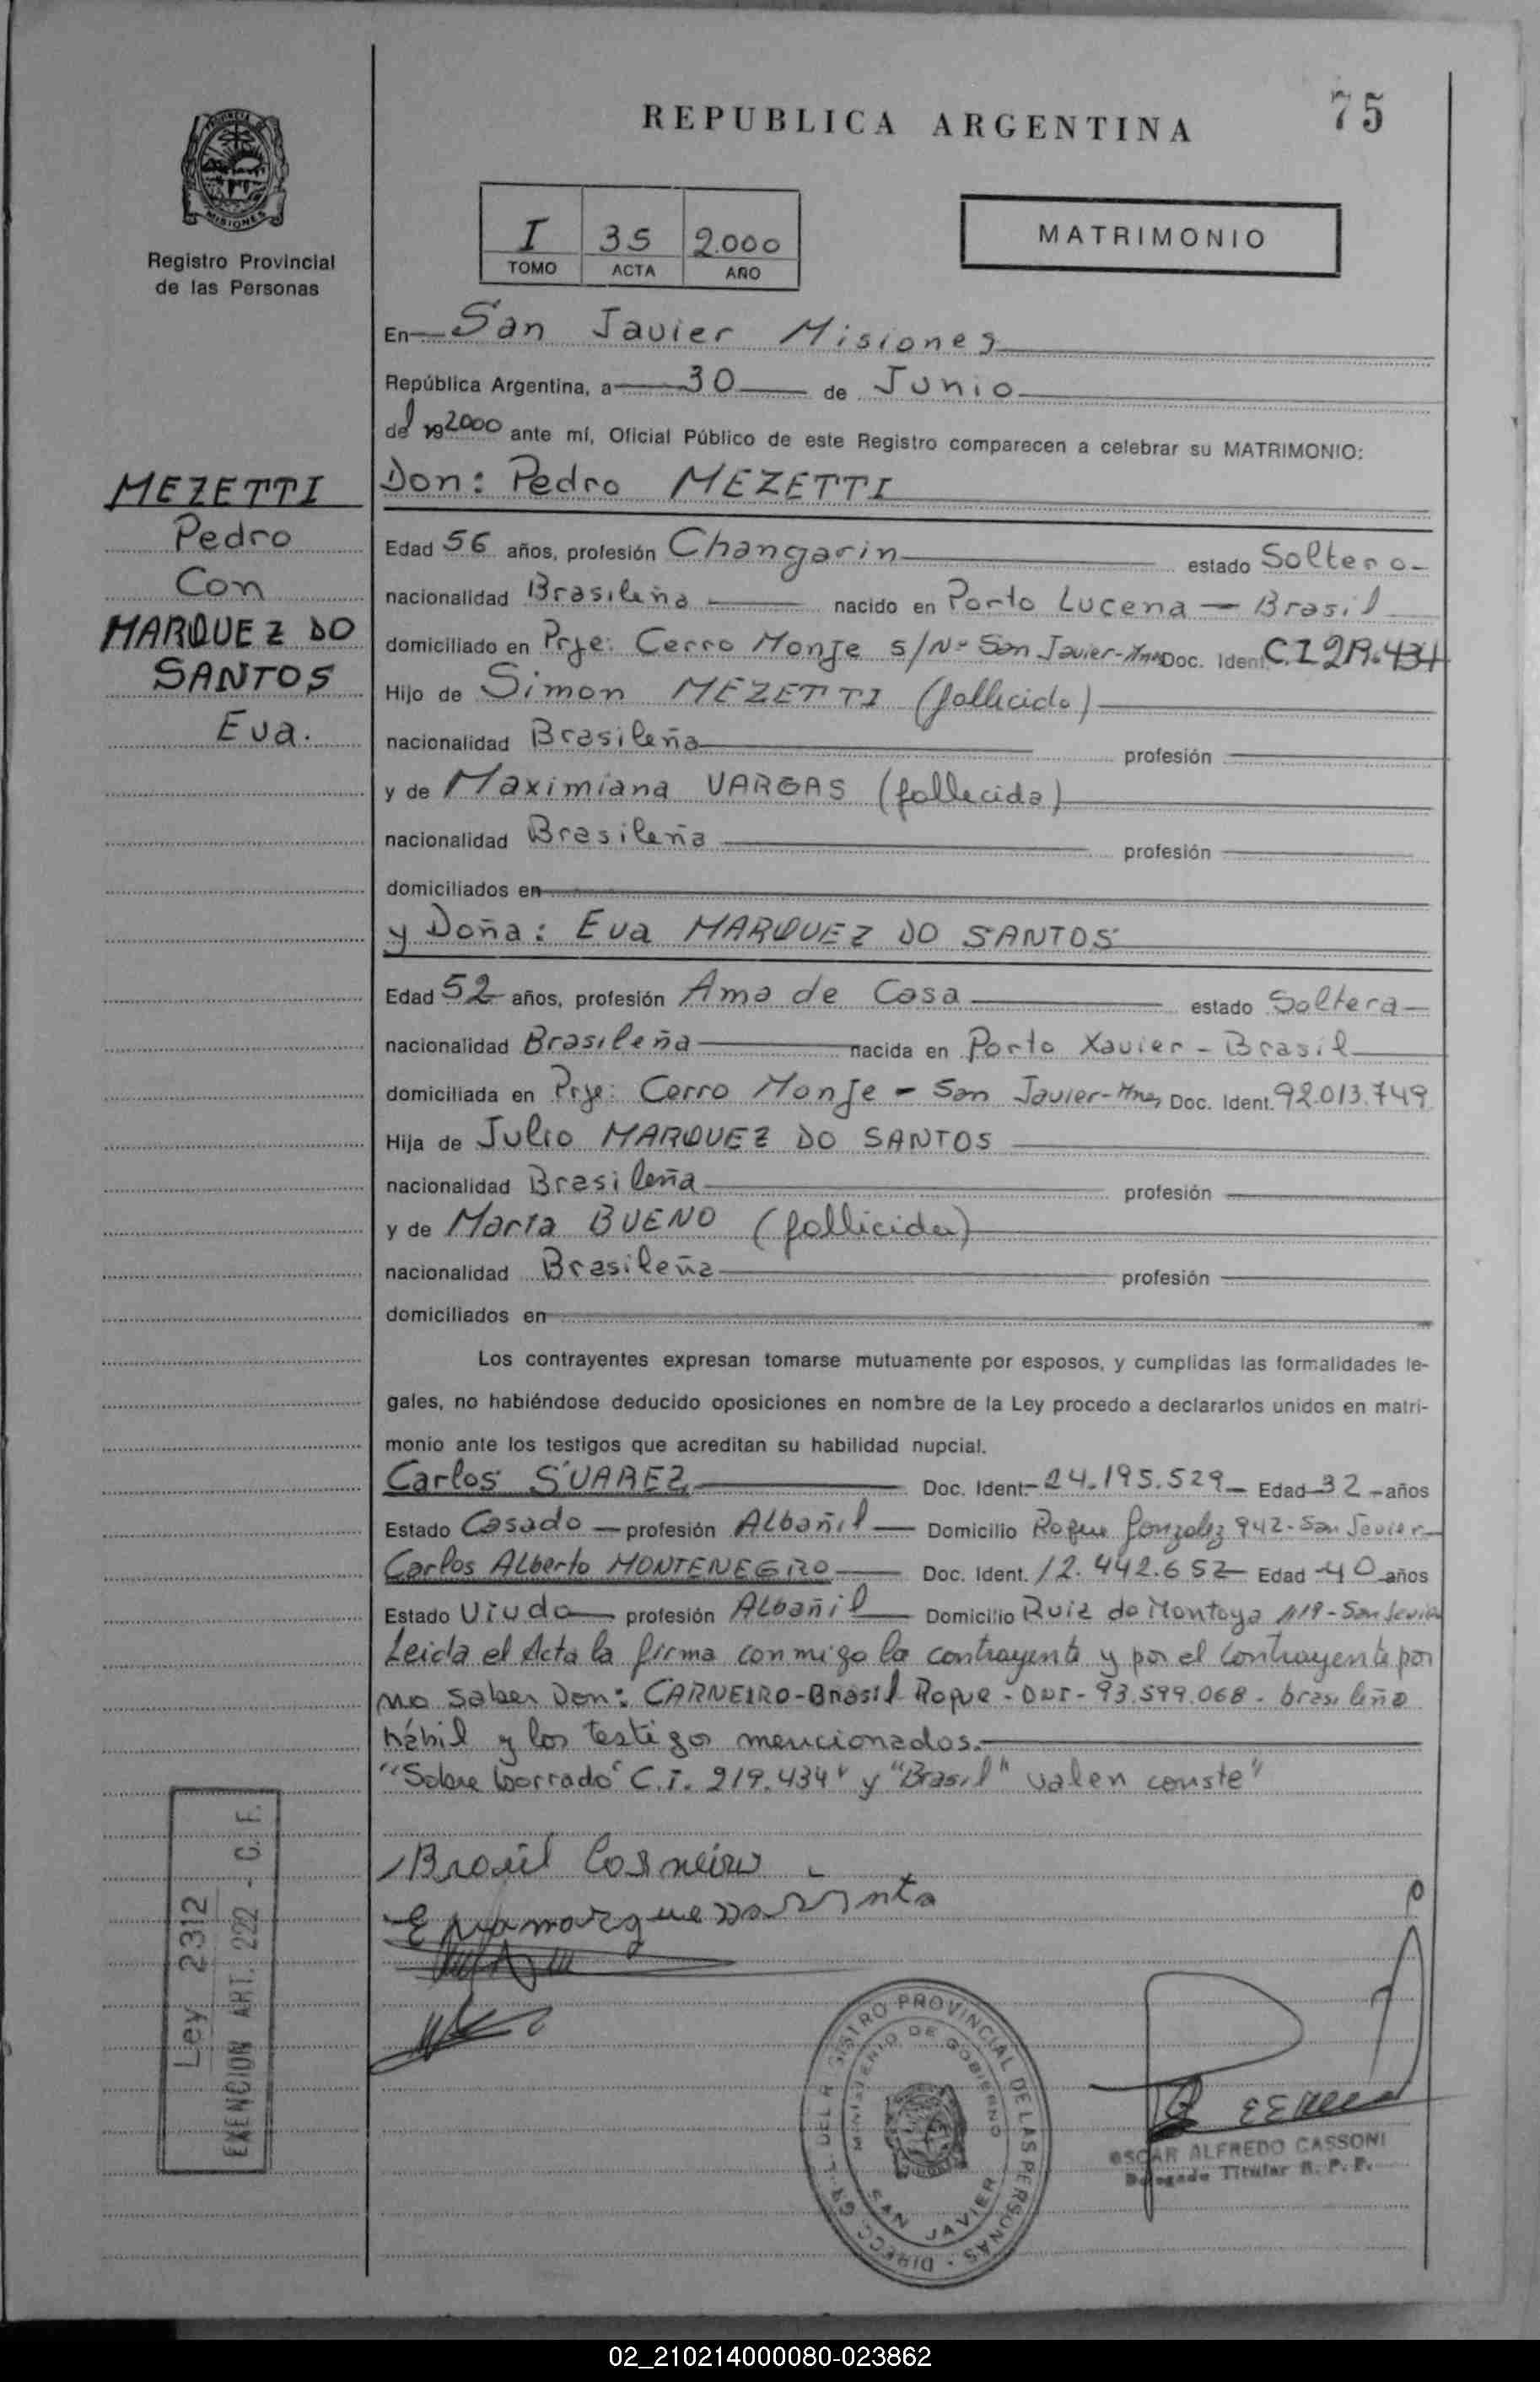 REPUBLICA ARGENTINA
75
PROVINCIA DE
MISIONES
Registro Provincial
de las Personas
I 35 2.000
TOMO ACTA AÑO
MATRIMONIO
En San Javier Misiones
República Argentina, a 30 de Junio
del 192000 ante mí, Oficial Público de este Registro comparecen a celebrar su MATRIMONIO:
MEZETTI
Pedro
Con
MARQUEZ DO
SANTOS
Eva.
Don: Pedro MEZETTI
Edad 56 años, profesión Changarin estado Soltero
nacionalidad Brasileña nacido en Porto Lucena - Brasil
domiciliado en Prje: Cerro Monje s/Nº San Javier-Mnes Doc. Ident. C.I 219.434
Hijo de Simon MEZETTI (fallicido)
nacionalidad Brasileña profesión
y de Maximiana VARGAS (fallecida)
nacionalidad Brasileña profesión
domiciliados en
y Doña: Eva MARQUEZ DO SANTOS
Edad 52 años, profesión Ama de Casa estado Soltera
nacionalidad Brasileña nacida en Porto Xavier - Brasil
domiciliada en Prje: Cerro Monje - San Javier-Mnes Doc. Ident. 92.013.749
Hija de Julio MARQUEZ DO SANTOS
nacionalidad Brasileña profesión
y de Maria BUENO (fallicida)
nacionalidad Brasileña profesión
domiciliados en
Los contrayentes expresan tomarse mutuamente por esposos, y cumplidas las formalidades le-
gales, no habiéndose deducido oposiciones en nombre de la Ley procedo a declararlos unidos en matri-
monio ante los testigos que acreditan su habilidad nupcial.
Carlos SUAREZ Doc. Ident. 24.195.529 Edad 32 años
Estado Casado profesión Albañil Domicilio Roque Gonzalez 942-San Javier
Carlos Alberto MONTENEGRO Doc. Ident. 12.442.652 Edad 40 años
Estado Viudo profesión Albañil Domicilio Ruiz de Montoya 119-San Javier
Leida el Acta la firma conmigo la contrayente y por el contrayente por
no saber Don: CARNEIRO-Brasil Roque-DNI-93.599.068- brasileño
hábil y los testigos mencionados.
"Sobre borrado" C.I. 219.434" y "Brasil" valen conste"
Brasil Carneiro
Ley 2312
EXENCION ART. 222 - C.F.
DIRECC. GRL. DEL REGISTRO PROVINCIAL DE LAS PERSONAS
MINISTERIO DE GOBIERNO
SAN JAVIER
OSCAR ALFREDO CASSONI
Delegado Titular R. P. P.
02_210214000080-023862